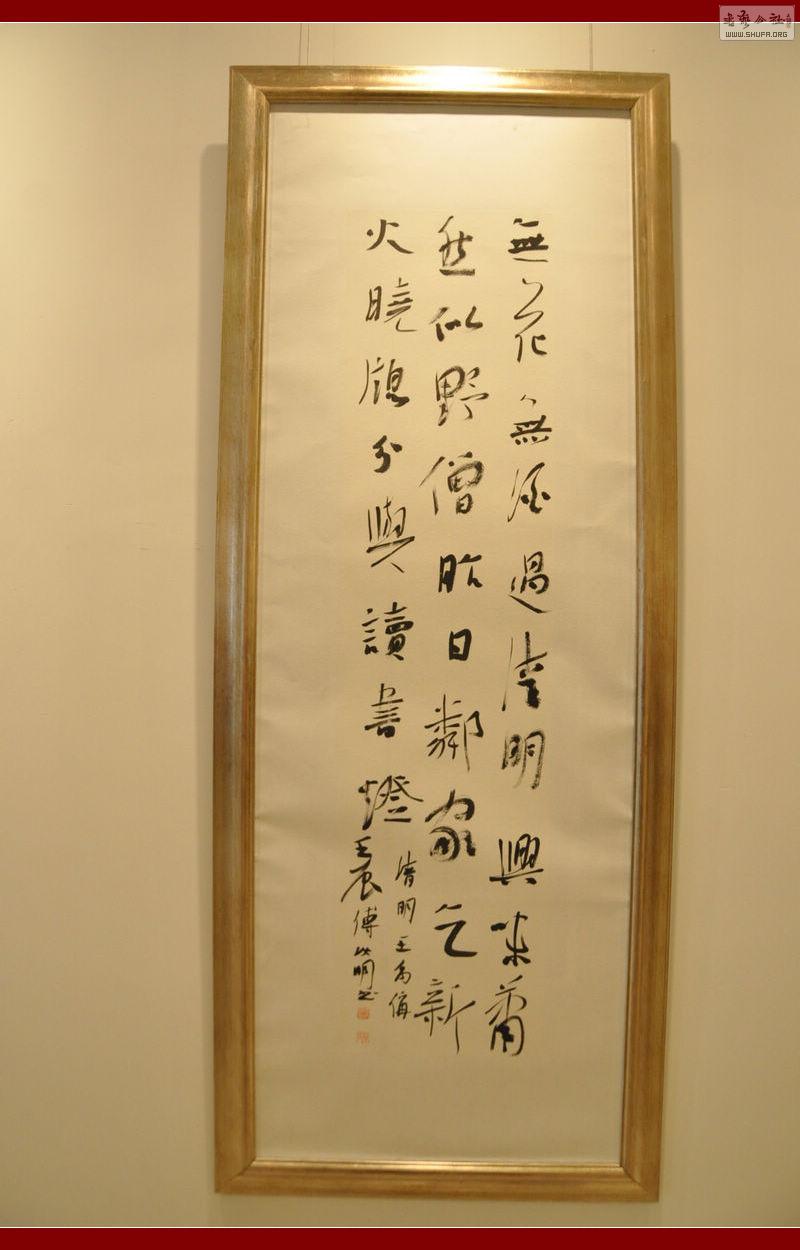 書藝公社
WWW.SHUFA.ORG
無花無酒過清明興味蕭
然似野僧昨日鄰家乞新
火曉牕分與讀書燈
清明王禹偁
壬辰傅明书